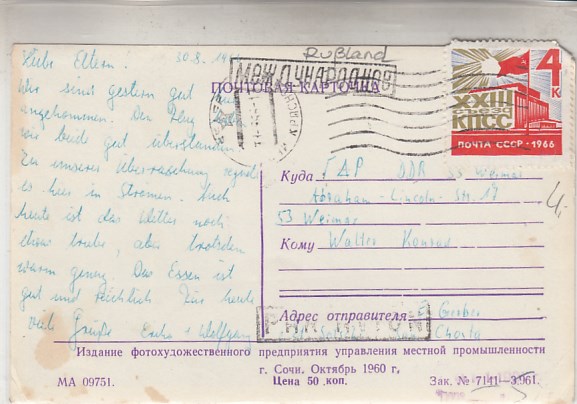 Liebe Eltern! 30.8.
Rußland
МЕЖДУНАРОДНОЕ
ПОЧТОВАЯ КАРТОЧКА
4 к
XXIII
СЪЕЗД
КПСС
ПОЧТА СССР · 1966
Wir sind gestern gut
angekommen. Den Flug
wir beide gut überstanden.
Zu unserer Überraschung regnete
es hier in Strömen. Auch
heute ist das Wetter noch
etwas trübe, aber trotzdem
warm genug. Das Essen ist
gut und reichlich. Für heute
viele Grüße Wolfgang
Куда ГДР DDR 53 Weimar
Abraham-Lincoln-Str. 17
53 Weimar
Кому Walter Konrad
Адрес отправителя: Gerber
Издание фотохудожественного предприятия управления местной промышленности
г. Сочи. Октябрь 1960 г.
МА 09751. Цена 50 коп. Зак. № 7141—3.961.